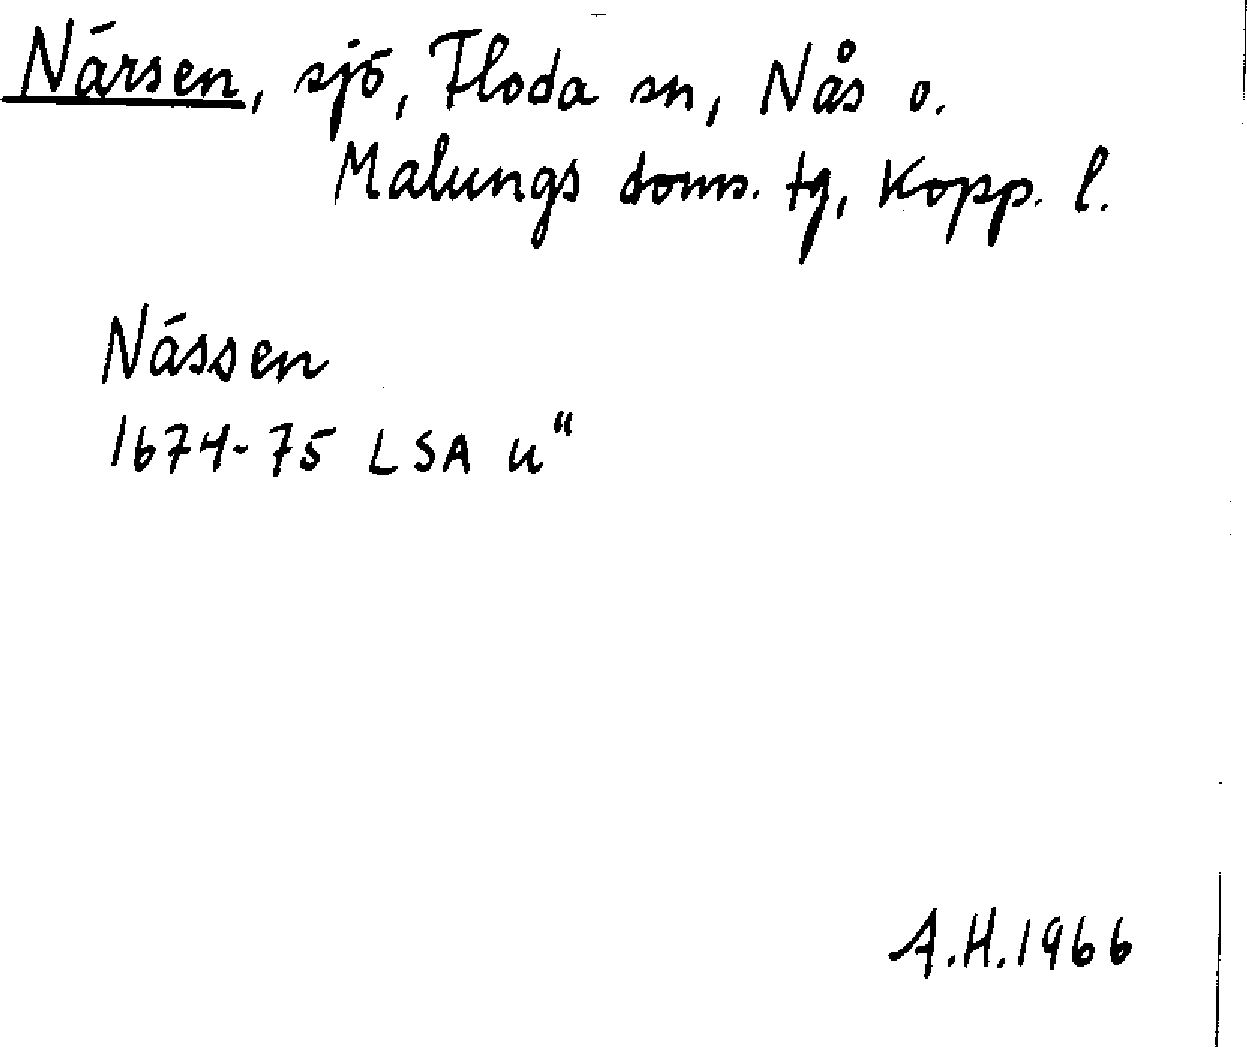 Närsen, sjö, Floda sn, Nås o.
Malungs doms. tg, Kopp. l.
Nässen
1674-75 LSA u"
A.H. 1966